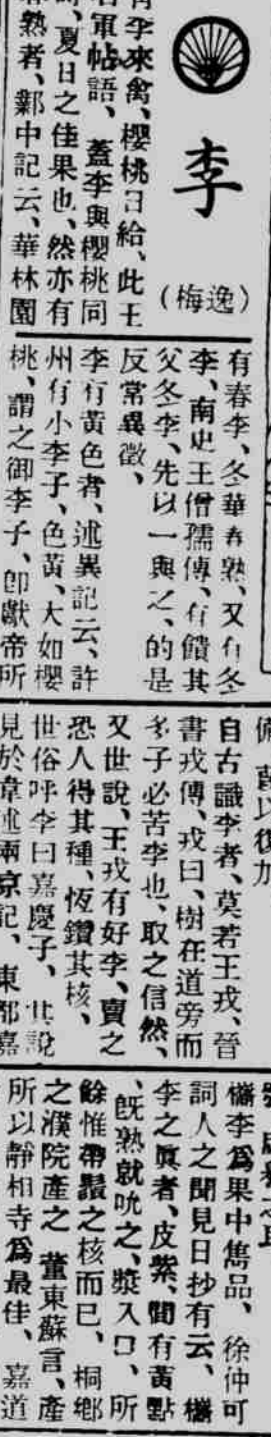 李
(梅逸)
青李來禽、櫻桃日給、此王
右軍帖語、蓋李與櫻桃同
時、夏日之佳果也、然亦有
熟者、鄴中記云、華林園
有春李、冬華春熟、又有冬
李、南史王僧孺傳、有饋其
父冬李、先以一與之、的是
反常異徵、
李有黃色者、述異記云、許
州有小李子、色黃、大如櫻
桃、謂之御李子、卽獻帝所
自古識李者、莫若王戎、晉
書戎傳、戎曰、樹在道旁而
多子必苦李也、取之信然、
又世說、王戎有好李、賣之
恐人得其種、恆鑽其核、
世俗呼李曰嘉慶子、其說
見於韋述兩京記、東都嘉
檇李爲果中雋品、徐仲可
詞人之聞見日抄有云、檇
李之眞者、皮紫、間有黃點
、旣熟就吮之、漿入口、所
餘惟帶鬚之核而已、桐鄉
之濮院產之 董東蘇言、產
所以靜相寺爲最佳、嘉道